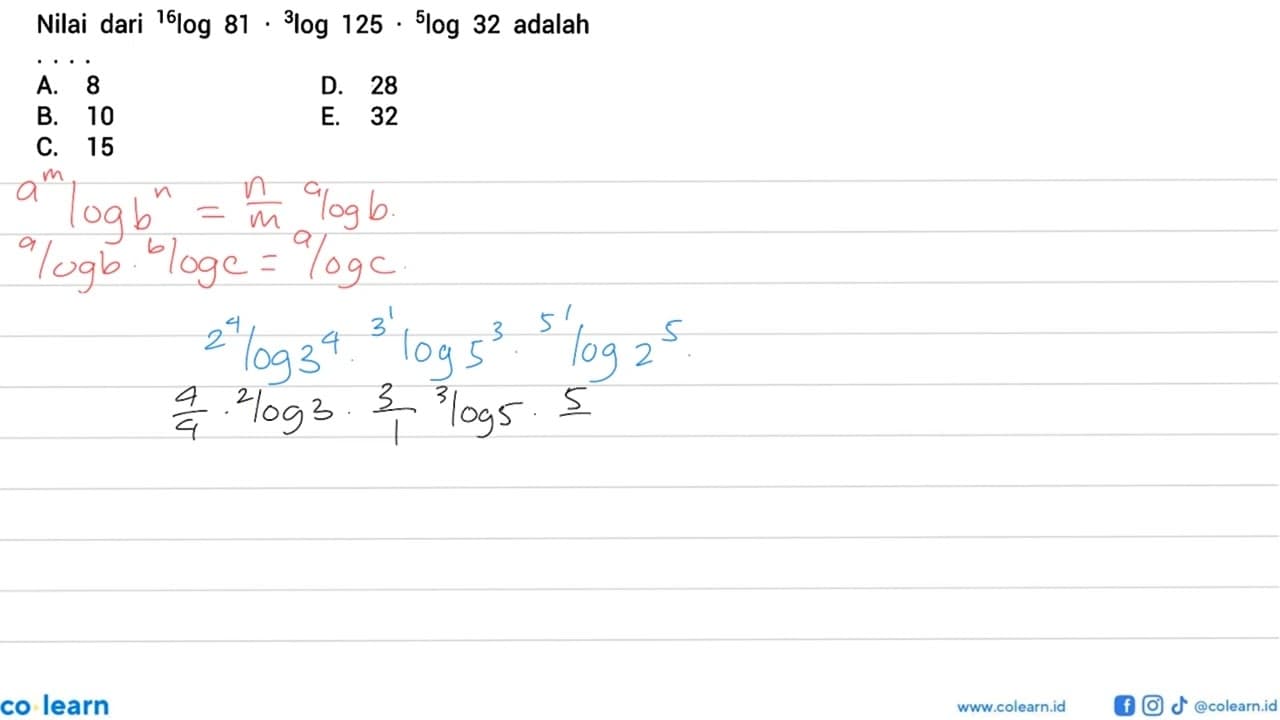 Nilai dari ¹⁶log 81 · ³log 125 · ⁵log 32 adalah
. . . .
A. 8 D. 28
B. 10 E. 32
C. 15
a^m log b^n = n/m ᵃlog b.
ᵃlog b . ᵇlog c = ᵃlog c.
2^4 log 3^4 . 3^1 log 5^3 . 5^1 log 2^5 .
4/4 . ²log 3 . 3/1 ³log 5 . 5/
co·learn www.colearn.id @colearn.id